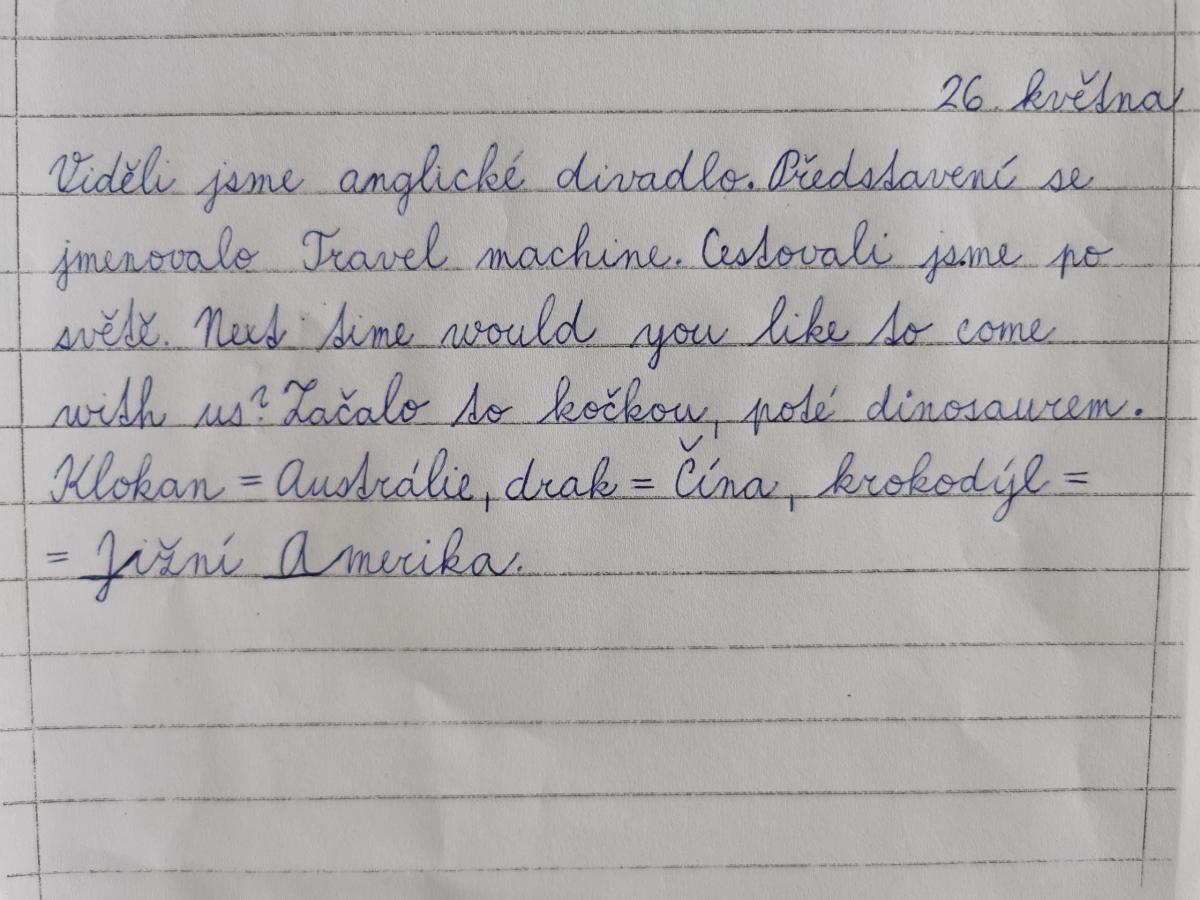 26. května
Viděli jsme anglické divadlo. Představení se
jmenovalo Travel machine. Cestovali jsme po
světě. Next time would you like to come
with us? Začalo to kočkou, poté dinosaurem.
Klokan = Austrálie, drak = Čína, krokodýl =
= Jižní Amerika.